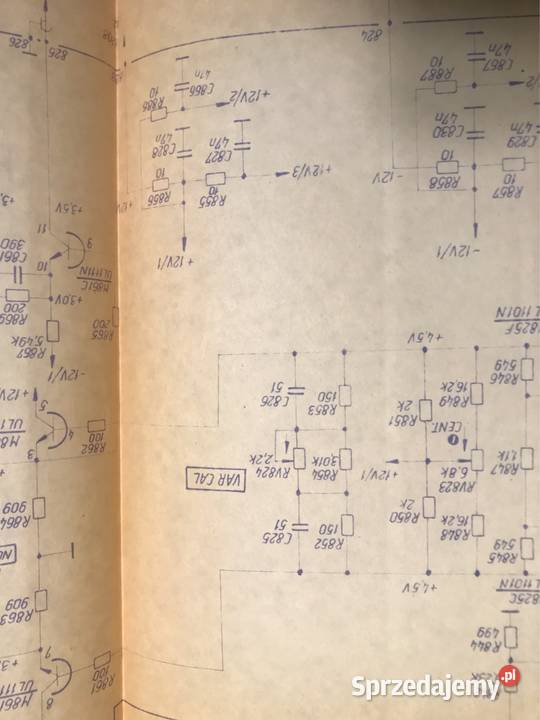 499
R844
M861
UL111
8
7
R861
100
+4,5V
R845
549
R848
16,2k
R850
2k
R852
150
C825
51
R863
909
R847
1,1k
RV823
6,8k
CENT.
+12V/1
R854
3,01k
RV824
2,2k
VAR CAL
R864
909
3
4
5
R862
100
R846
549
R849
16,2k
R851
2k
R853
150
C826
51
+4,5V
-12V/1
R867
5,49k
R865
200
+3,0V
R869
200
C861
390
M861C
UL1111N
9
10
11
+3,5V
-12V/1
+12V/1
R857
10
R858
10
-12V
R855
10
R856
10
+12V/3
C829
47n
C830
47n
C827
47n
C828
47n
+12V/2
R887
10
R886
10
C867
47n
C866
47n
824
825
826
Sprzedajemy.pl